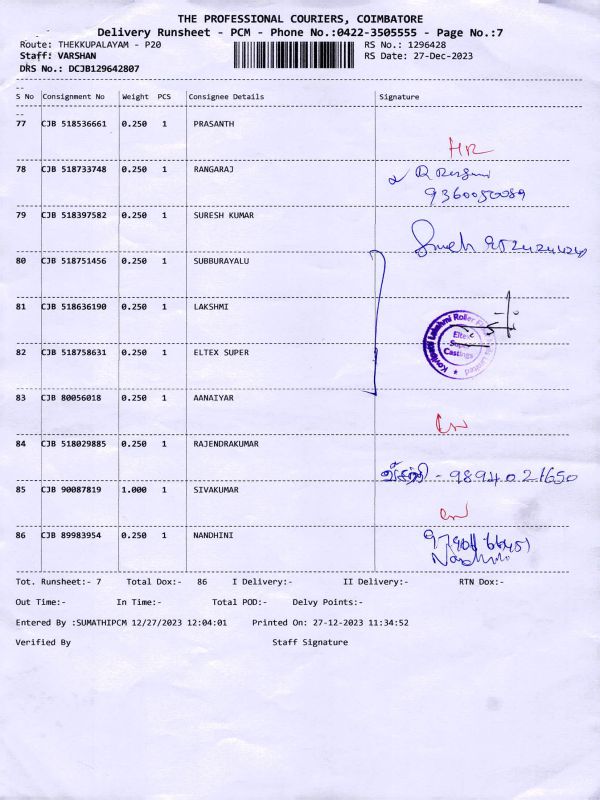 THE PROFESSIONAL COURIERS, COIMBATORE
Delivery Runsheet - PCM - Phone No.:0422-3505555 - Page No.:7
Route: THEKKUPALAYAM - P20 RS No.: 1296428
Staff: VARSHAN RS Date: 27-Dec-2023
DRS No.: DCJB129642807
S No Consignment No Weight PCS Consignee Details Signature
77 CJB 518536661 0.250 1 PRASANTH
HR
78 CJB 518733748 0.250 1 RANGARAJ
9360050089
79 CJB 518397582 0.250 1 SURESH KUMAR
80 CJB 518751456 0.250 1 SUBBURAYALU
81 CJB 518636190 0.250 1 LAKSHMI
Eltex
Super
Castings
82 CJB 518758631 0.250 1 ELTEX SUPER
83 CJB 80056018 0.250 1 AANAIYAR
84 CJB 518029885 0.250 1 RAJENDRAKUMAR
- 9894021650
85 CJB 90087819 1.000 1 SIVAKUMAR
86 CJB 89983954 0.250 1 NANDHINI
Tot. Runsheet:- 7 Total Dox:- 86 I Delivery:- II Delivery:- RTN Dox:-
Out Time:- In Time:- Total POD:- Delvy Points:-
Entered By :SUMATHIPCM 12/27/2023 12:04:01 Printed On: 27-12-2023 11:34:52
Verified By Staff Signature